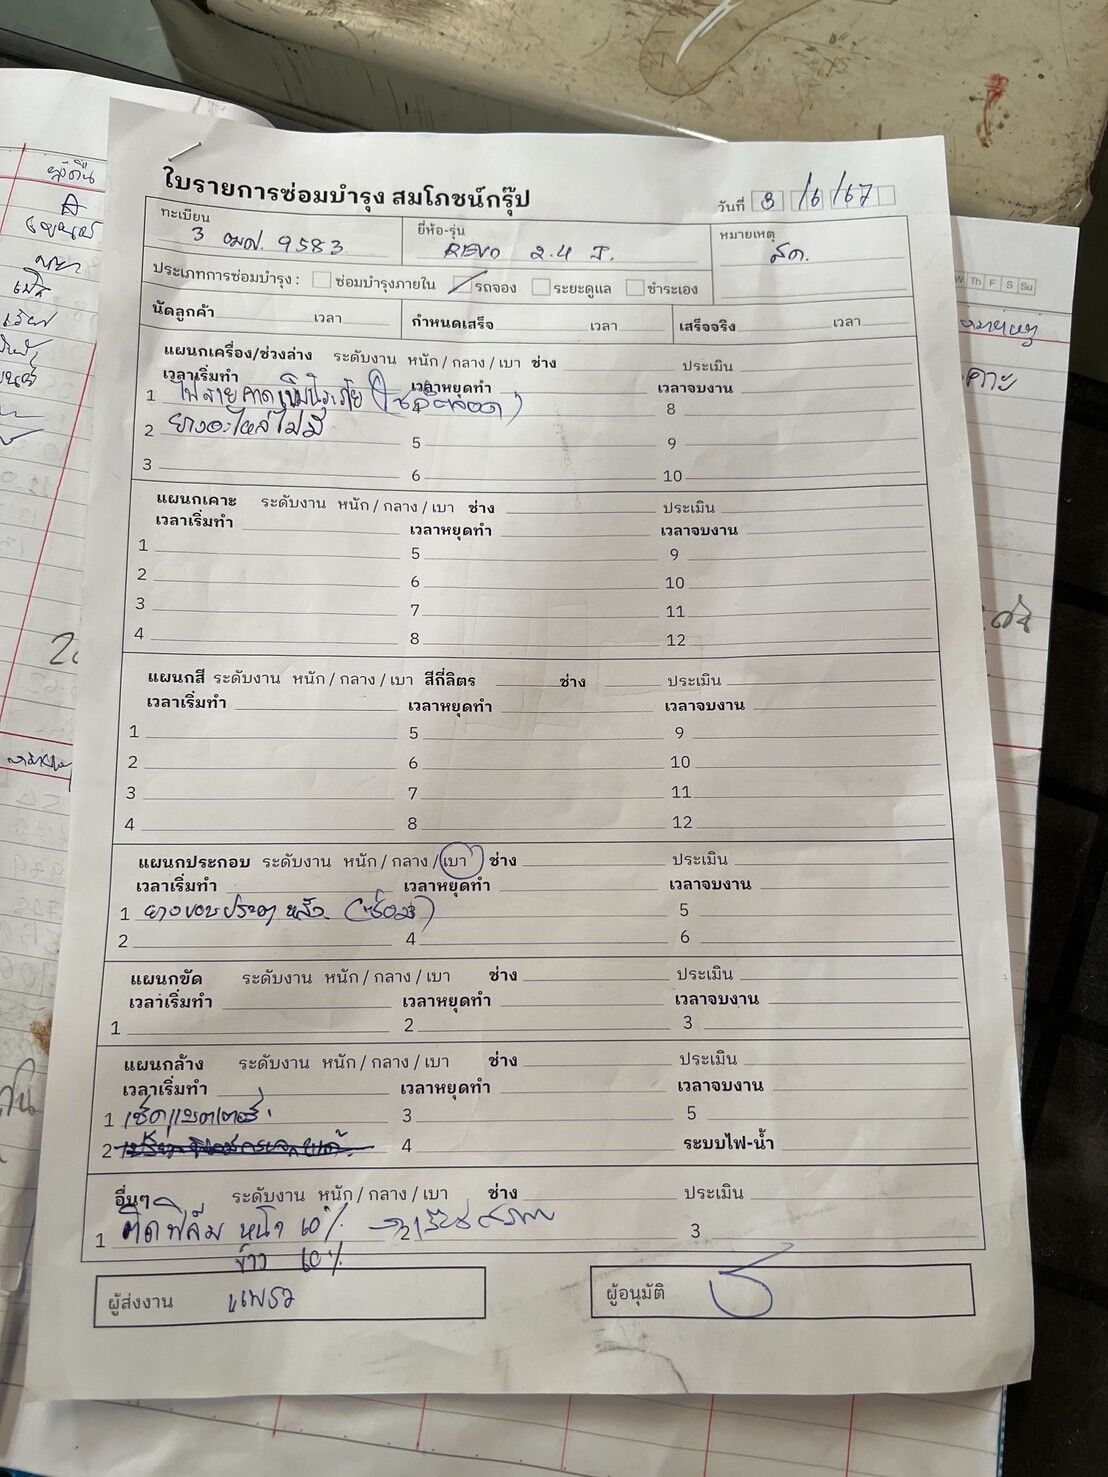 ใบรายการซ่อมบำรุง สมโภชน์กรุ๊ป
วันที่ 3/6/67
ทะเบียน ยี่ห้อ-รุ่น หมายเหตุ
3 ฒศ. 9583 REVO 2.4 J. สด.
ประเภทการซ่อมบำรุง : ซ่อมบำรุงภายใน รถจอง ระยะดูแล ชำระเอง
นัดลูกค้า เวลา กำหนดเสร็จ เวลา เสร็จจริง เวลา
แผนกเครื่อง/ช่วงล่าง ระดับงาน หนัก / กลาง / เบา ช่าง ประเมิน
เวลาเริ่มทำ เวลาหยุดทำ เวลาจบงาน
1 ไฟสายคาดเข็มนิรภัย (โชว์ตลอด) 4 8
2 ยางอะไหล่ไม่มี 5 9
3 6 10
แผนกเคาะ ระดับงาน หนัก / กลาง / เบา ช่าง ประเมิน
เวลาเริ่มทำ เวลาหยุดทำ เวลาจบงาน
1 5 9
2 6 10
3 7 11
4 8 12
แผนกสี ระดับงาน หนัก / กลาง / เบา สีกี่ลิตร ช่าง ประเมิน
เวลาเริ่มทำ เวลาหยุดทำ เวลาจบงาน
1 5 9
2 6 10
3 7 11
4 8 12
แผนกประกอบ ระดับงาน หนัก / กลาง / เบา ช่าง ประเมิน
เวลาเริ่มทำ เวลาหยุดทำ เวลาจบงาน
1 ยางขอบประตู หลัง 3 5
2 4 6
แผนกขัด ระดับงาน หนัก / กลาง / เบา ช่าง ประเมิน
เวลาเริ่มทำ เวลาหยุดทำ เวลาจบงาน
1 2 3
แผนกล้าง ระดับงาน หนัก / กลาง / เบา ช่าง ประเมิน
เวลาเริ่มทำ เวลาหยุดทำ เวลาจบงาน
1 เช็คแบตเตอรี่ 3 5
2 4 ระบบไฟ-น้ำ
อื่นๆ ระดับงาน หนัก / กลาง / เบา ช่าง ประเมิน
1 ติดฟิล์ม หน้า 60% 2 3
ข้าง 60%
ผู้ส่งงาน แพรว ผู้อนุมัติ
W Th F S Su